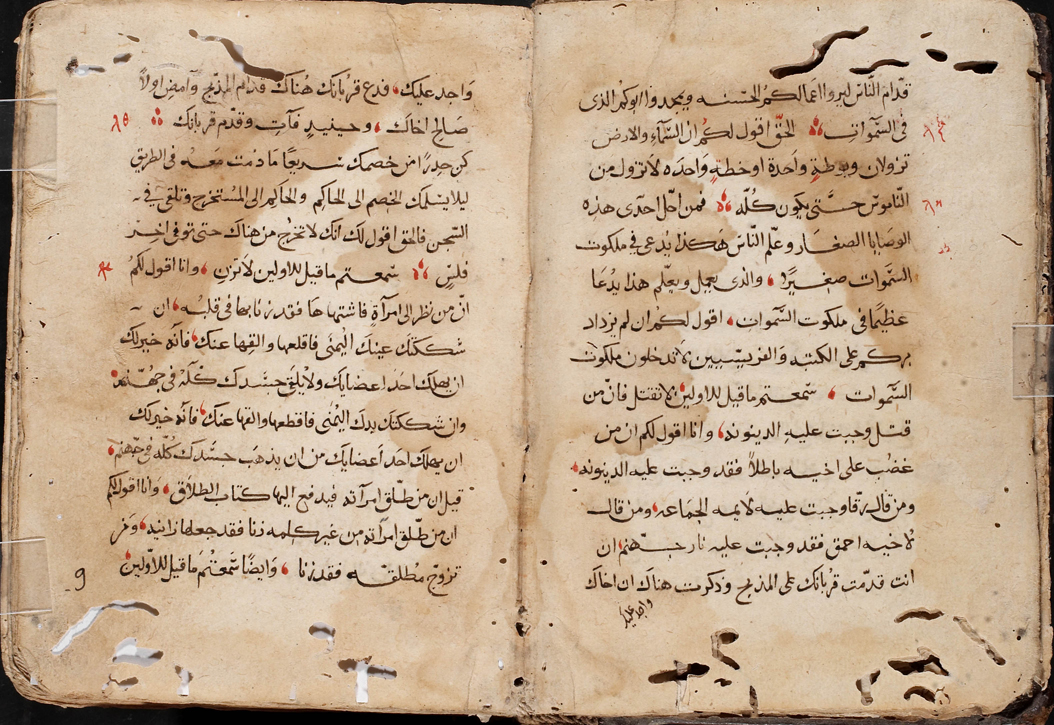 قدام الناس ليروا اعمالكم الحسنه ويمجدوا ابوكم الذى
فى السموات الحق اقول لكم ان السماء والارض
تزولان ويوطة واحدة او خطة واحده لا تزول من
الناموس حتى يكون كله فمن احل احدى هذه
الوصايا الصغار وعلم الناس هكذا يدعى فى ملكوت
السموات صغيرا والذى يعمل ويعلم هذا يدعا
عظيما فى ملكوت السموات اقول لكم ان لم يزداد
بركم على الكتبه والفريسيين لا تدخلون ملكوت
السموات سمعتم ما قيل للاولين لا تقتل فان من
قتل وجبت عليه الدينونه وانا اقول لكم ان من
غضب على اخيه باطلا فقد وجبت عليه الدينونه
ومن قال رقا وجبت عليه لايمه الجماعه ومن قال
لاخيه احمق فقد وجبت عليه نار جهنم ان
انت قدمت قربانك على المذبح وذكرت هناك ان اخاك
واجد عليك
واجد عليك فدع قربانك هناك قدام المذبح وامض اولا
صالح اخاك وحينيذ فات وقدم قربانك
كن حدرا من خصمك سريعا ما دمت معه فى الطريق
ليلا يسلمك الخصم الى الحاكم والحاكم الى المستخرج وتلقى فى
السجن فالحق اقول لك انك لا تخرج من هناك حتى توفى اخر
فلس سمعتم ما قيل للاولين لا تزن وانا اقول لكم
ان من نظر الى امرآة فاشتهاها فقد زنا بها فى قلبه ان
شككتك عينك اليمنى فاقلعها والقها عنك فانه خير لك
ان يهلك احد اعضايك ولا يلقى جسدك كله فى جهنم
وان شككتك يدك اليمنى فاقطعها والقها عنك فانه خير لك
ان يهلك احد اعضايك من ان يذهب جسدك كله فى جهنم
قيل ان من طلق امرآته فيدفع اليها كتاب الطلاق وانا اقول لكم
ان من طلق امرآته من غير كلمه زنا فقد جعلها زانيه ومن
تزوج مطلقه فقد زنا وايضا سمعتم ما قيل للاولين
9